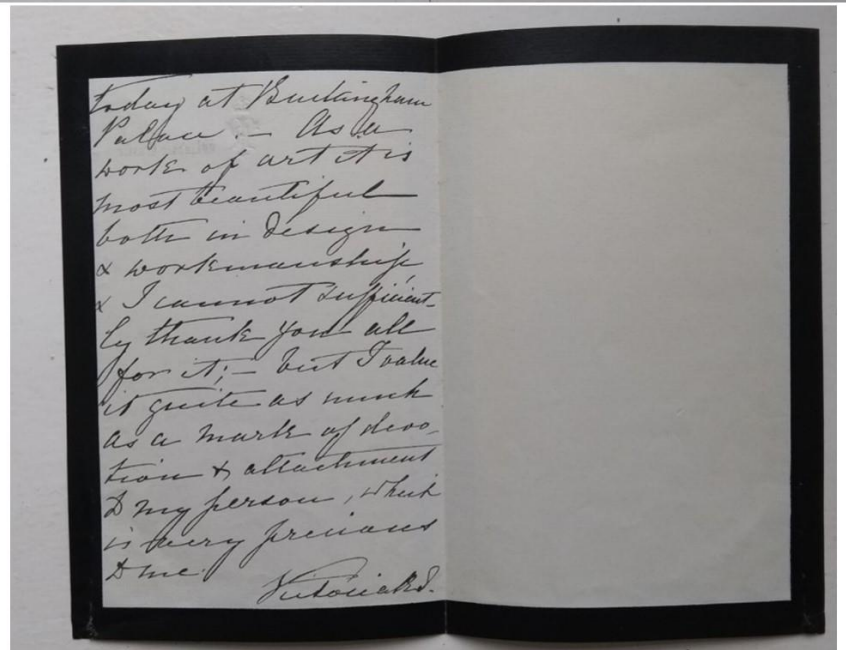 today at Buckingham
Palace. — As a
work of art it is
most beautiful
both in design
& workmanship
& I cannot sufficient-
ly thank you all
for it; — but I value
it quite as much
as a mark of devo-
tion & attachment
to my person, which
is very precious
to me.
Victoria R I.